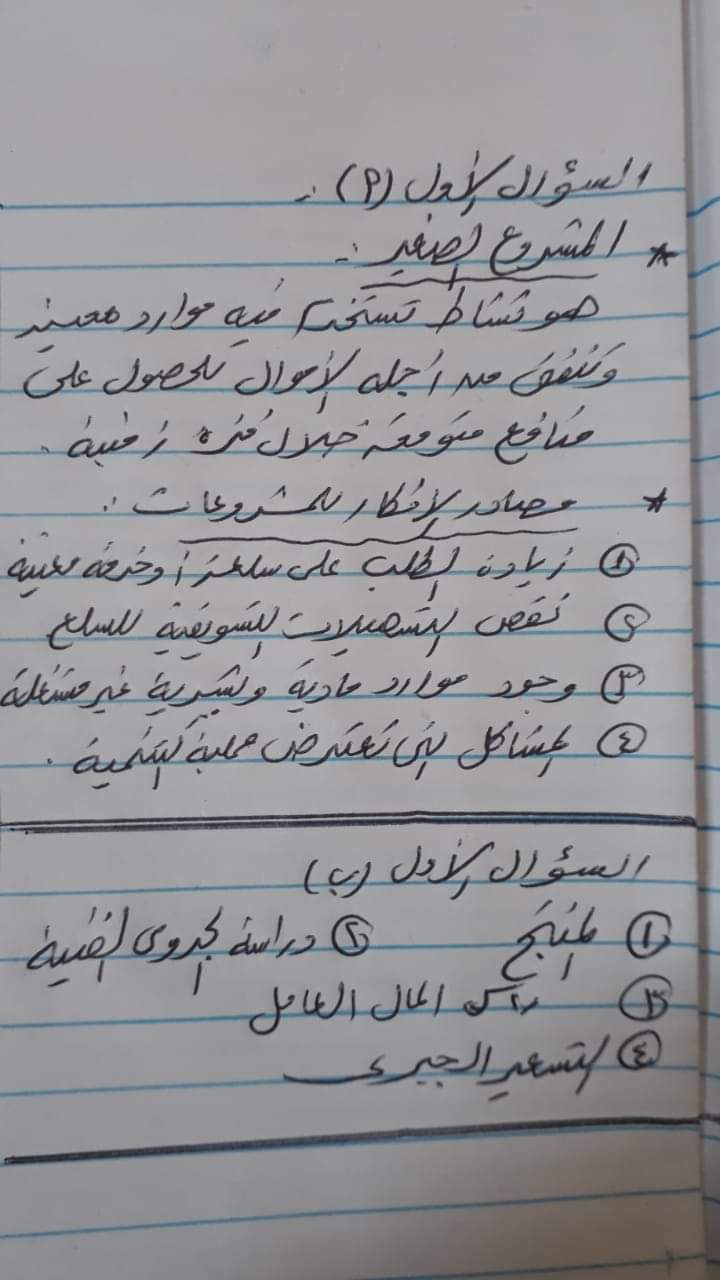 السؤال الأول (أ) :-
* المشروع الصغير :-
هو نشاط تستخدم فيه موارد معينة
وتنفق من أجله الأموال للحصول على
منافع متوقعة خلال فترة زمنية .
* مصادر الأفكار للمشروعات :
① زيادة الطلب على سلعة أو خدمة معينة
② نقص التسهيلات التسويقية للسلع
③ وجود موارد مادية وبشرية غير مستغلة
④ المشاكل التى تعترض عملية التنمية .
السؤال الأول (ب)
① المنتج ② دراسة الجدوى الفنية
③ رأس المال العامل
④ التسعير الجبرى